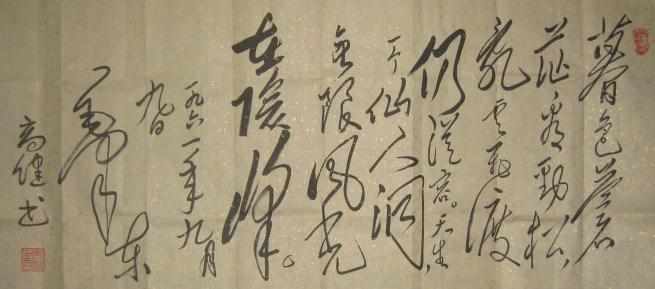 暮色苍
茫看劲松
乱云飞渡
仍从容。天生
一个仙人洞
无限风光
在险峰。
一九六一年九月
九日
毛泽东
高健书